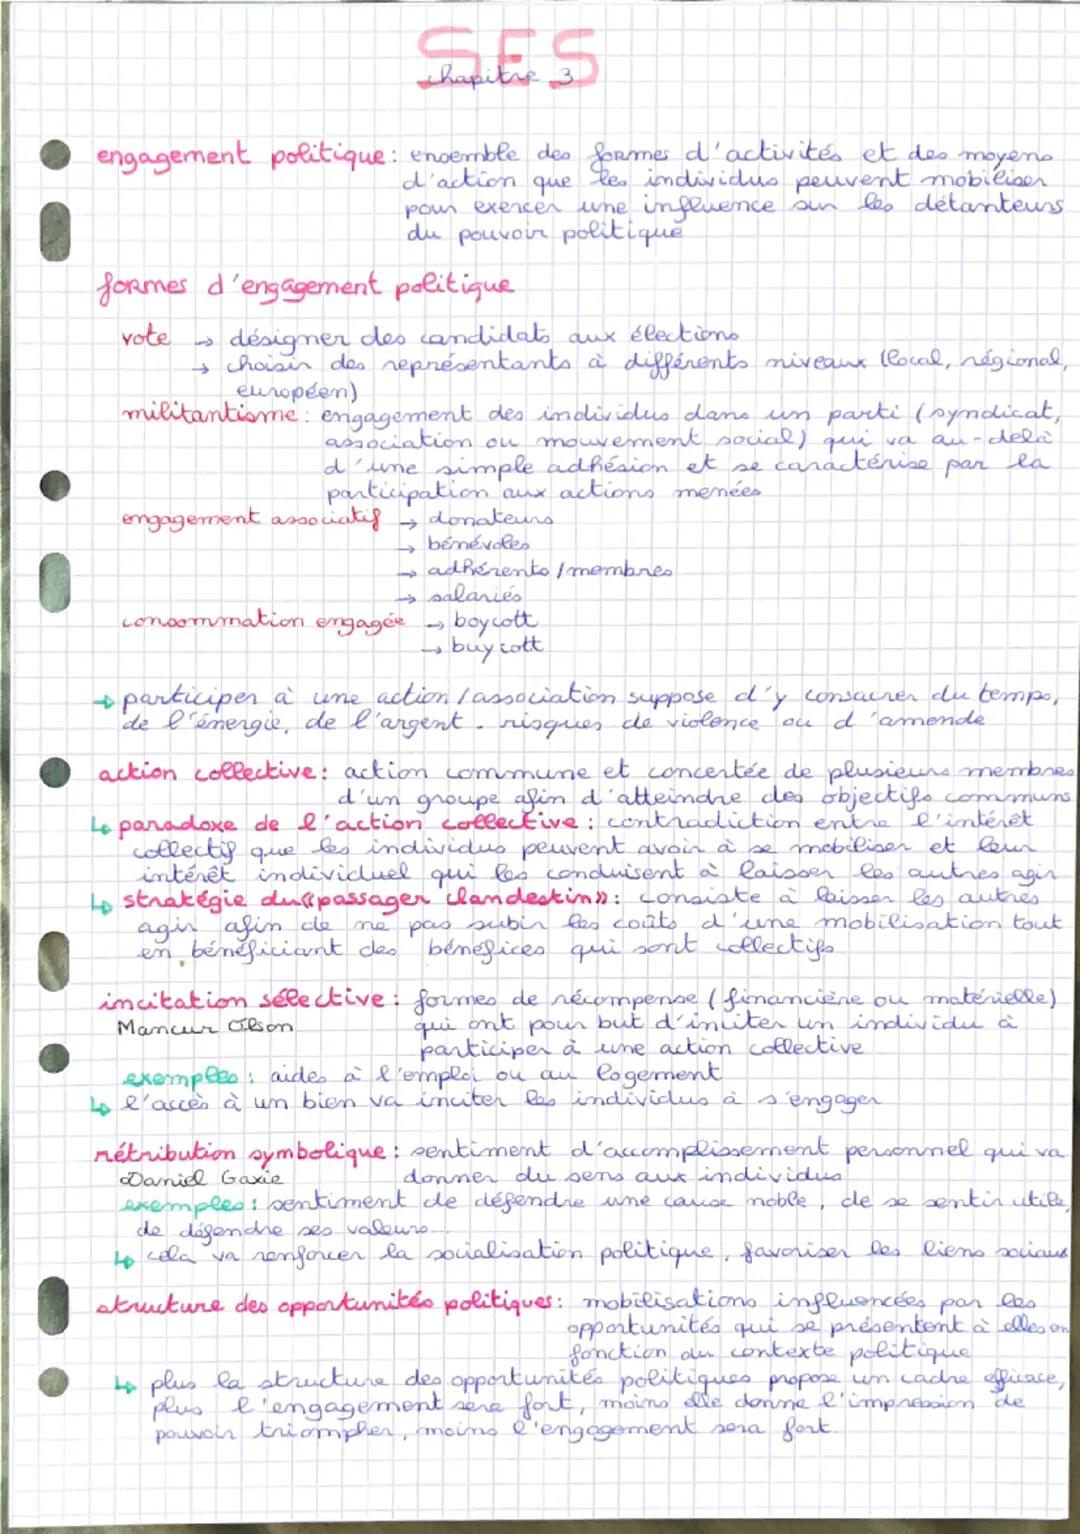 SES
chapitre 3
engagement politique : ensemble des formes d'activités et des moyens
d'action que les individus peuvent mobiliser
pour exercer une influence sur les détanteurs
du pouvoir politique
formes d'engagement politique
vote → désigner des candidats aux élections
→ choisir des représentants à différents niveaux (local, régional,
européen)
militantisme : engagement des individus dans un parti (syndicat,
association ou mouvement social) qui va au-delà
d'une simple adhésion et se caractérise par la
participation aux actions menées
engagement associatif → donateurs
→ bénévoles
→ adhérents / membres
→ salariés
consommation engagée → boycott
→ buycott
→ participer à une action / association suppose d'y consacrer du temps,
de l'énergie, de l'argent. risques de violence ou d'amende
action collective : action commune et concertée de plusieurs membres
d'un groupe afin d'atteindre des objectifs communs
↳ paradoxe de l'action collective : contradiction entre l'intérêt
collectif que les individus peuvent avoir à se mobiliser et leur
intérêt individuel qui les conduisent à laisser les autres agir
↳ stratégie du «passager clandestin» : consiste à laisser les autres
agir afin de ne pas subir les coûts d'une mobilisation tout
en bénéficiant des bénéfices qui sont collectifs
incitation sélective : formes de récompense (financière ou matérielle)
Mancur Olson qui ont pour but d'inciter un individu à
participer à une action collective
exemples : aides à l'emploi ou au logement
↳ l'accès à un bien va inciter les individus à s'engager
rétribution symbolique : sentiment d'accomplissement personnel qui va
Daniel Gaxie donner du sens aux individus
exemples : sentiment de défendre une cause noble, de se sentir utile,
de défendre ses valeurs...
↳ cela va renforcer la socialisation politique, favoriser les liens sociaux
structure des opportunités politiques : mobilisations influencées par les
opportunités qui se présentent à elles en
fonction du contexte politique
↳ plus la structure des opportunités politiques propose un cadre efficace,
plus l'engagement sera fort, moins elle donne l'impression de
pouvoir triompher, moins l'engagement sera fort.